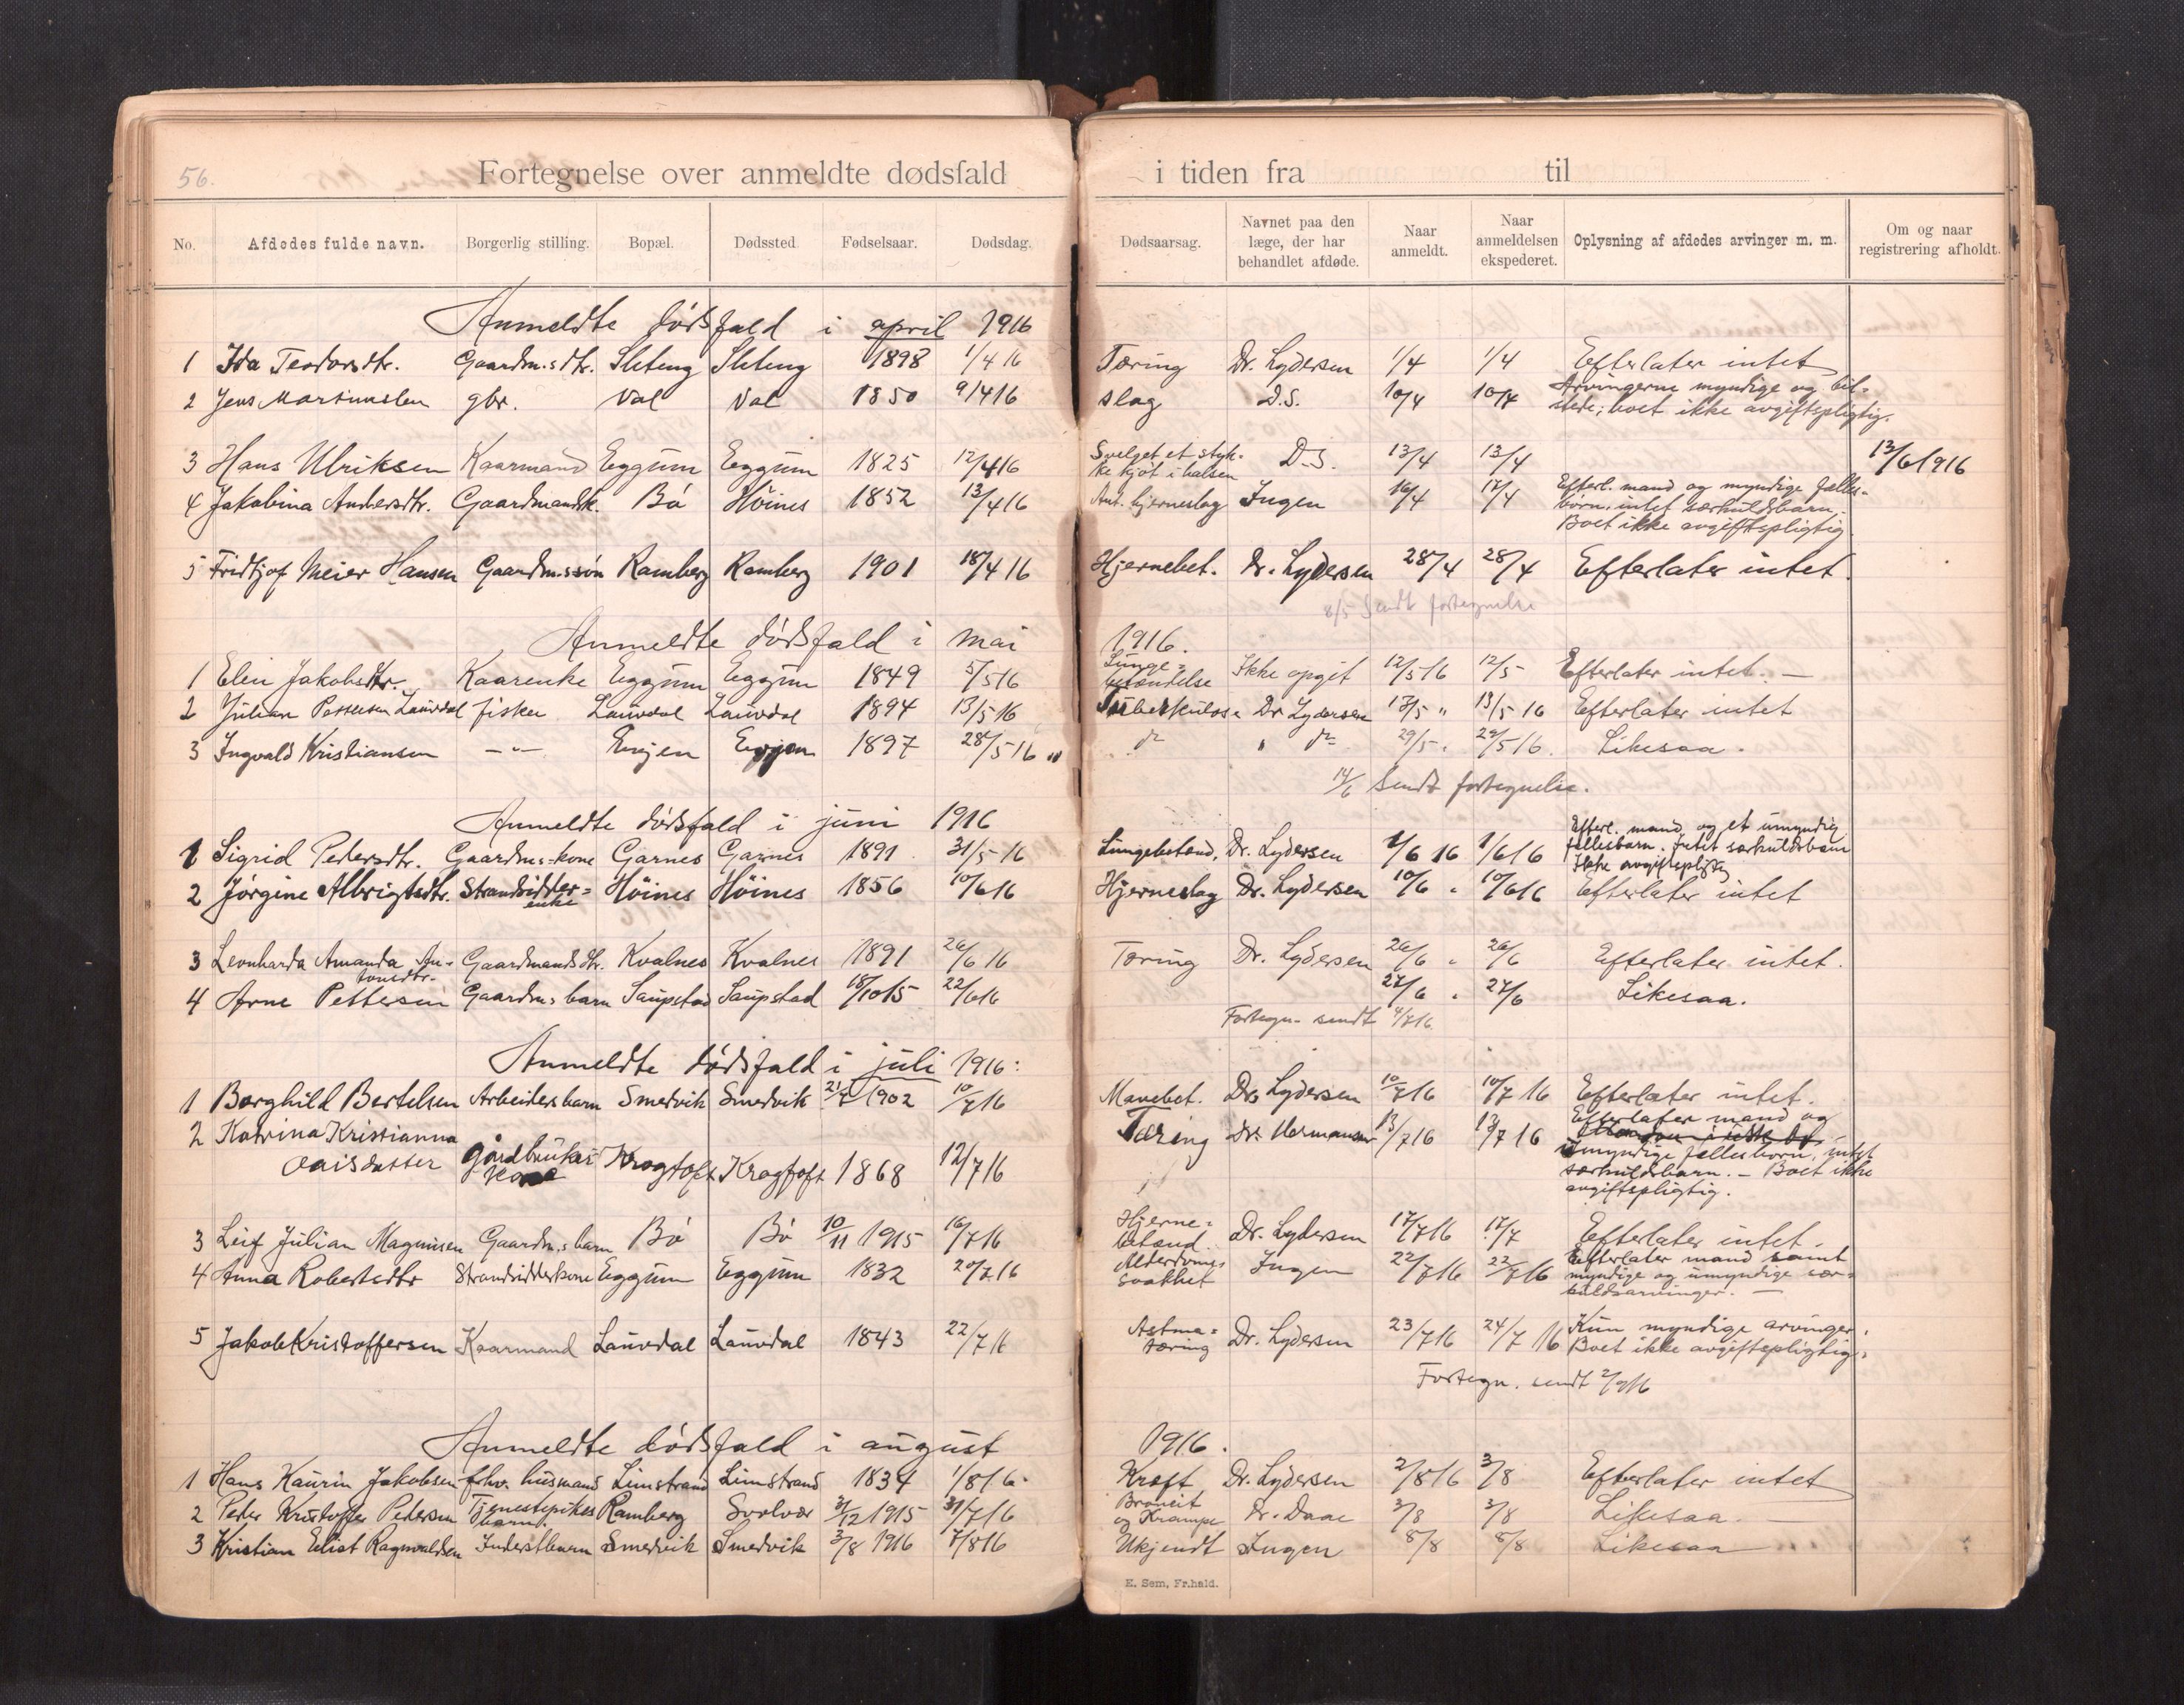 56.
Fortegnelse over anmeldte dødsfald i tiden fra til
No. Afdødes fulde navn. Borgerlig stilling. Bopæl. Dødssted Fødselsaar. Dødsdag. Dødsaarsag. Navnet paa den læge, der har behandlet afdøde. Naar anmeldt. Naar anmeldelsen ekspederet. Oplysning af afdødes arvinger m. m. Om og naar registrering afholdt.
Anmeldte dødsfald i april 1916
1 Ida Teodorsdtr. Gaardm.s dtr. Sleteng Sleteng 1898 1/4 16 Tæring Dr. Lydersen 1/4 1/4 Efterlater intet
2 Jens Martinussen gbr. Val Val 1850 9/4 16 slag D.S. 10/4 10/4 Arvingerne myndige og til-
stede; boet ikke avgiftspligtig.
3 Hans Ulriksen Kaarmand Eggum Eggum 1825 12/4 16 Svelget et styk-
ke kjøt i halsen D.S. 13/4 13/4 13/6 1916
4 Jakobina Andersdtr. Gaardmandsk. Bø Höines 1852 13/4 16 Ant. hjerneslag Ingen 16/4 17/4 Efterl. mand og myndige fælles-
børn, intet særkuldsbarn.
Boet ikke avgiftspligtig.
5 Fridtjof Meier Hansen Gaardm.s søn Ramberg Ramberg 1901 18/4 16 Hjernebet. Dr. Lydersen 28/4 28/4 Efterlater intet.
8/5 Sendt fortegnelse
Anmeldte dødsfald i mai 1916.
1 Elen Jakobsdtr. Kaarenke Eggum Eggum 1849 5/5 16 Lunge-
betændelse Ikke opgit 12/5 16 12/5 Efterlater intet. —
2 Julian Pettersen Lauvdal fisker Lauvdal Lauvdal 1894 13/5 16 Tuberkulose Dr Lydersen 13/5 " 13/5 16 Efterlater intet
3 Ingvald Kristiansen — " — Evjen Evjen 1897 28/5 16 " do " do 29/5 " 29/5 16. Likesaa.
14/6 Sendt fortegnelse.
Anmeldte dødsfald i juni 1916
1 Sigrid Pedersdtr. Gaardm.s-kone Garnes Garnes 1891 31/5 16 Lungebetænd. Dr. Lydersen 1/6 16 1/6 16 Efterl. mand og et umyndig
fellesbarn. Intet særkuldsbarn
Ikke avgiftspligtig
2 Jørgine Albrigtsdtr. Strandsidder-
enke Höines Höines 1856 10/6 16 Hjerneslag Dr. Lydersen 10/6 " 10/6 16 Efterlater intet
3 Leonharda Amanda An-
tonsdtr. Gaardmandsdtr. Kvalnes Kvalnes 1891 26/6 16 Tæring Dr. Lydersen 26/6 " 26/6 Efterlater intet.
4 Arne Pettersen Gaardm.s barn Saupstad Saupstad 18/10 15 22/6 16 27/6 " 27/6 Likesaa.
Fortegn. sendt 4/7 16
Anmeldte dødsfald i juli 1916:
1 Borghild Bertelsen Arbeiders barn Smedvik Smedvik 21/7 1902 10/7 16 Mavebet. Dr. Lydersen 10/7 16 10/7 16 Efterlater intet.
2 Katrina Kristianna
Daisdatter gårdbruker
kone Krogtoft Krogtoft 1868 12/7 16 Tæring Dr. Hermansen 13/7 16 13/7 16 Efterlater mand og
umyndige fællesbørn, intet
særkuldsbarn. — Boet ikke
avgiftspligtig.
3 Leif Julian Magnusen Gaardm.s barn Bø Bø 10/11 1915 16/7 16 Hjerne-
betænd. Dr. Lydersen 17/7 16 17/7 Efterlater intet.
4 Anna Robertsdtr Strandsidderkone Eggum Eggum 1832 20/7 16 Alderdoms-
svakhet Ingen 22/7 16 22/7 16 Efterlater mand samt
myndige og umyndige sær-
kuldsarvinger. —
5 Jakob Kristoffersen Kaarmand Lauvdal Lauvdal 1843 22/7 16 Astma-
tæring Dr. Lydersen 23/7 16 24/7 16 Kun myndige arvinger.
Boet ikke avgiftspligtig.
Fortegn. sendt 2/9 16
Anmeldte dødsfald i august 1916.
1 Hans Kaurin Jakobsen fhv. husmand Limstrand Limstrand 1834 1/8 16. Kræft Dr. Lydersen 2/8 16 3/8 Efterlater intet
2 Peder Kristoffer Pedersen Tjenestepikes
barn. Ramberg Svolvær 31/12 1915 31/7 16 Broncit
og Krampe Dr. Daae 3/8 3/8 Likesaa. —
3 Kristian Eliot Ragnvaldsen Inderstbarn Smedvik Smedvik 3/8 1916 7/8 16 Ukjendt Ingen 8/8 8/8 Likesaa
E. Sem, Fr.hald.